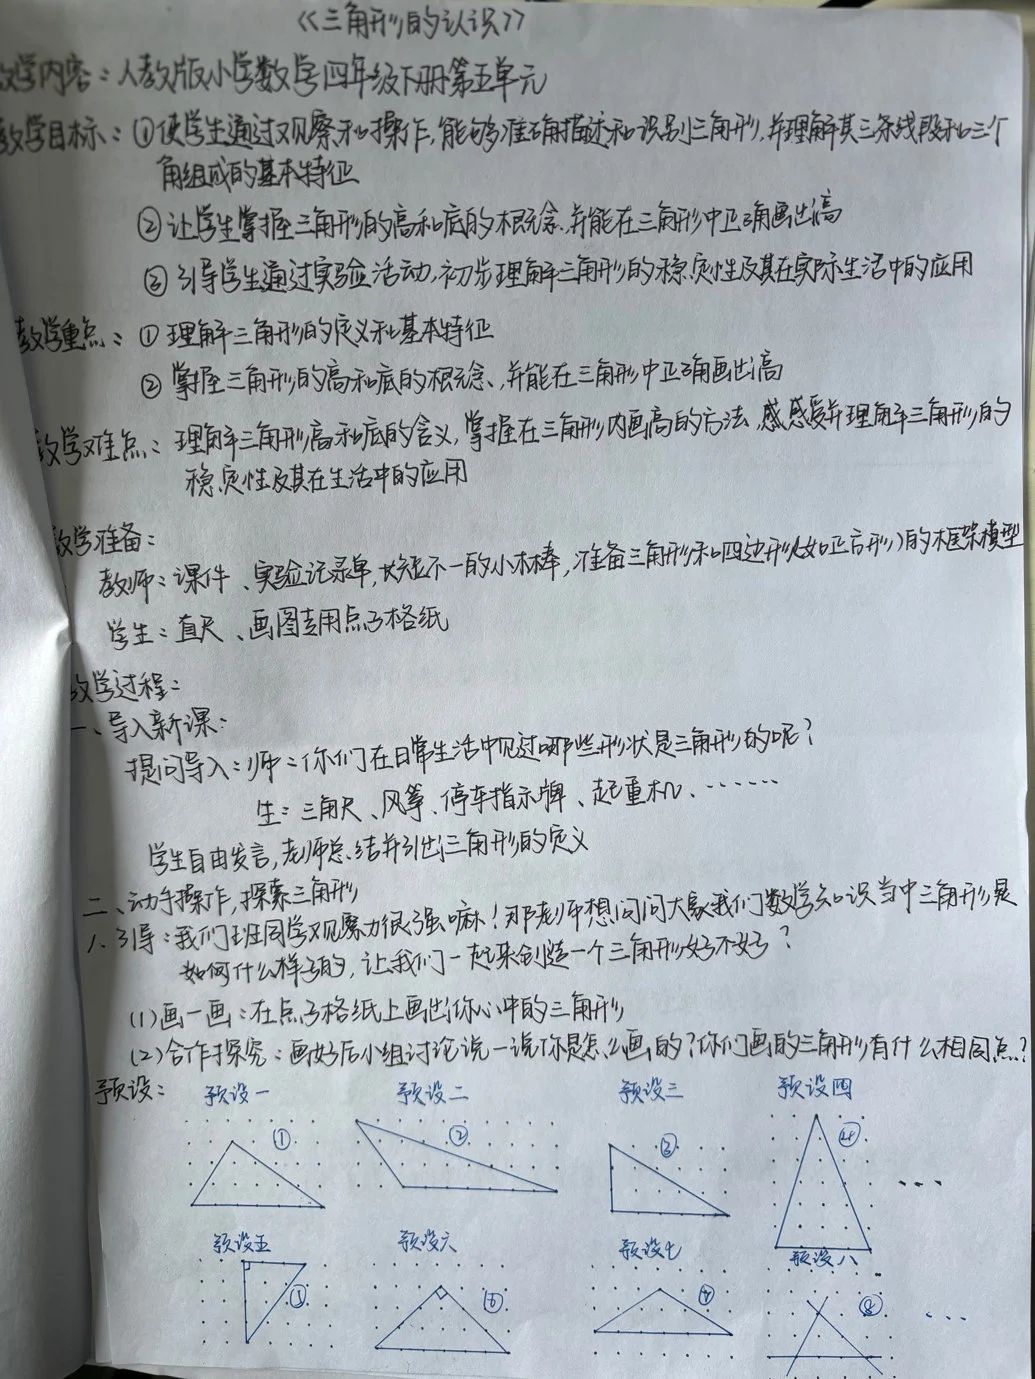 《三角形的认识》
教学内容：人教版小学数学四年级下册第五单元
教学目标：①使学生通过观察和操作，能够准确描述和识别三角形，并理解其三条线段和三个
角组成的基本特征
②让学生掌握三角形的高和底的概念、并能在三角形中正确画出高
③引导学生通过实验活动，初步理解三角形的稳定性及其在实际生活中的应用
教学重点：①理解三角形的定义和基本特征
②掌握三角形的高和底的概念、并能在三角形中正确画出高
教学难点：理解三角形高和底的含义，掌握在三角形内画高的方法，感感受并理解三角形的
稳定性及其在生活中的应用
教学准备：
教师：课件、实验记录单，长短不一的小木棒，准备三角形和四边形（如正方形）的框架模型
学生：直尺、画图专用点子格纸
教学过程：
一、导入新课：
提问导入：师：你们在日常生活中见过哪些形状是三角形的呢？
生：三角尺、风筝、停车指示牌、起重机、……
学生自由发言，老师总结并引出三角形的定义
二、动手操作，探索三角形
1、引导：我们班同学观察力很强嘛！那老师想问问大家我们数学知识当中三角形是
如何什么样子的，让我们一起来创造一个三角形好不好？
(1)画一画：在点子格纸上画出你心中的三角形
(2)合作探究：画好后小组讨论说一说你是怎么画的？你们画的三角形有什么相同点？
预设： 预设一 预设二 预设三 预设四
① ② ③ ④ …
预设五 预设六 预设七 预设八
⑥ ⑦ ⑧ …